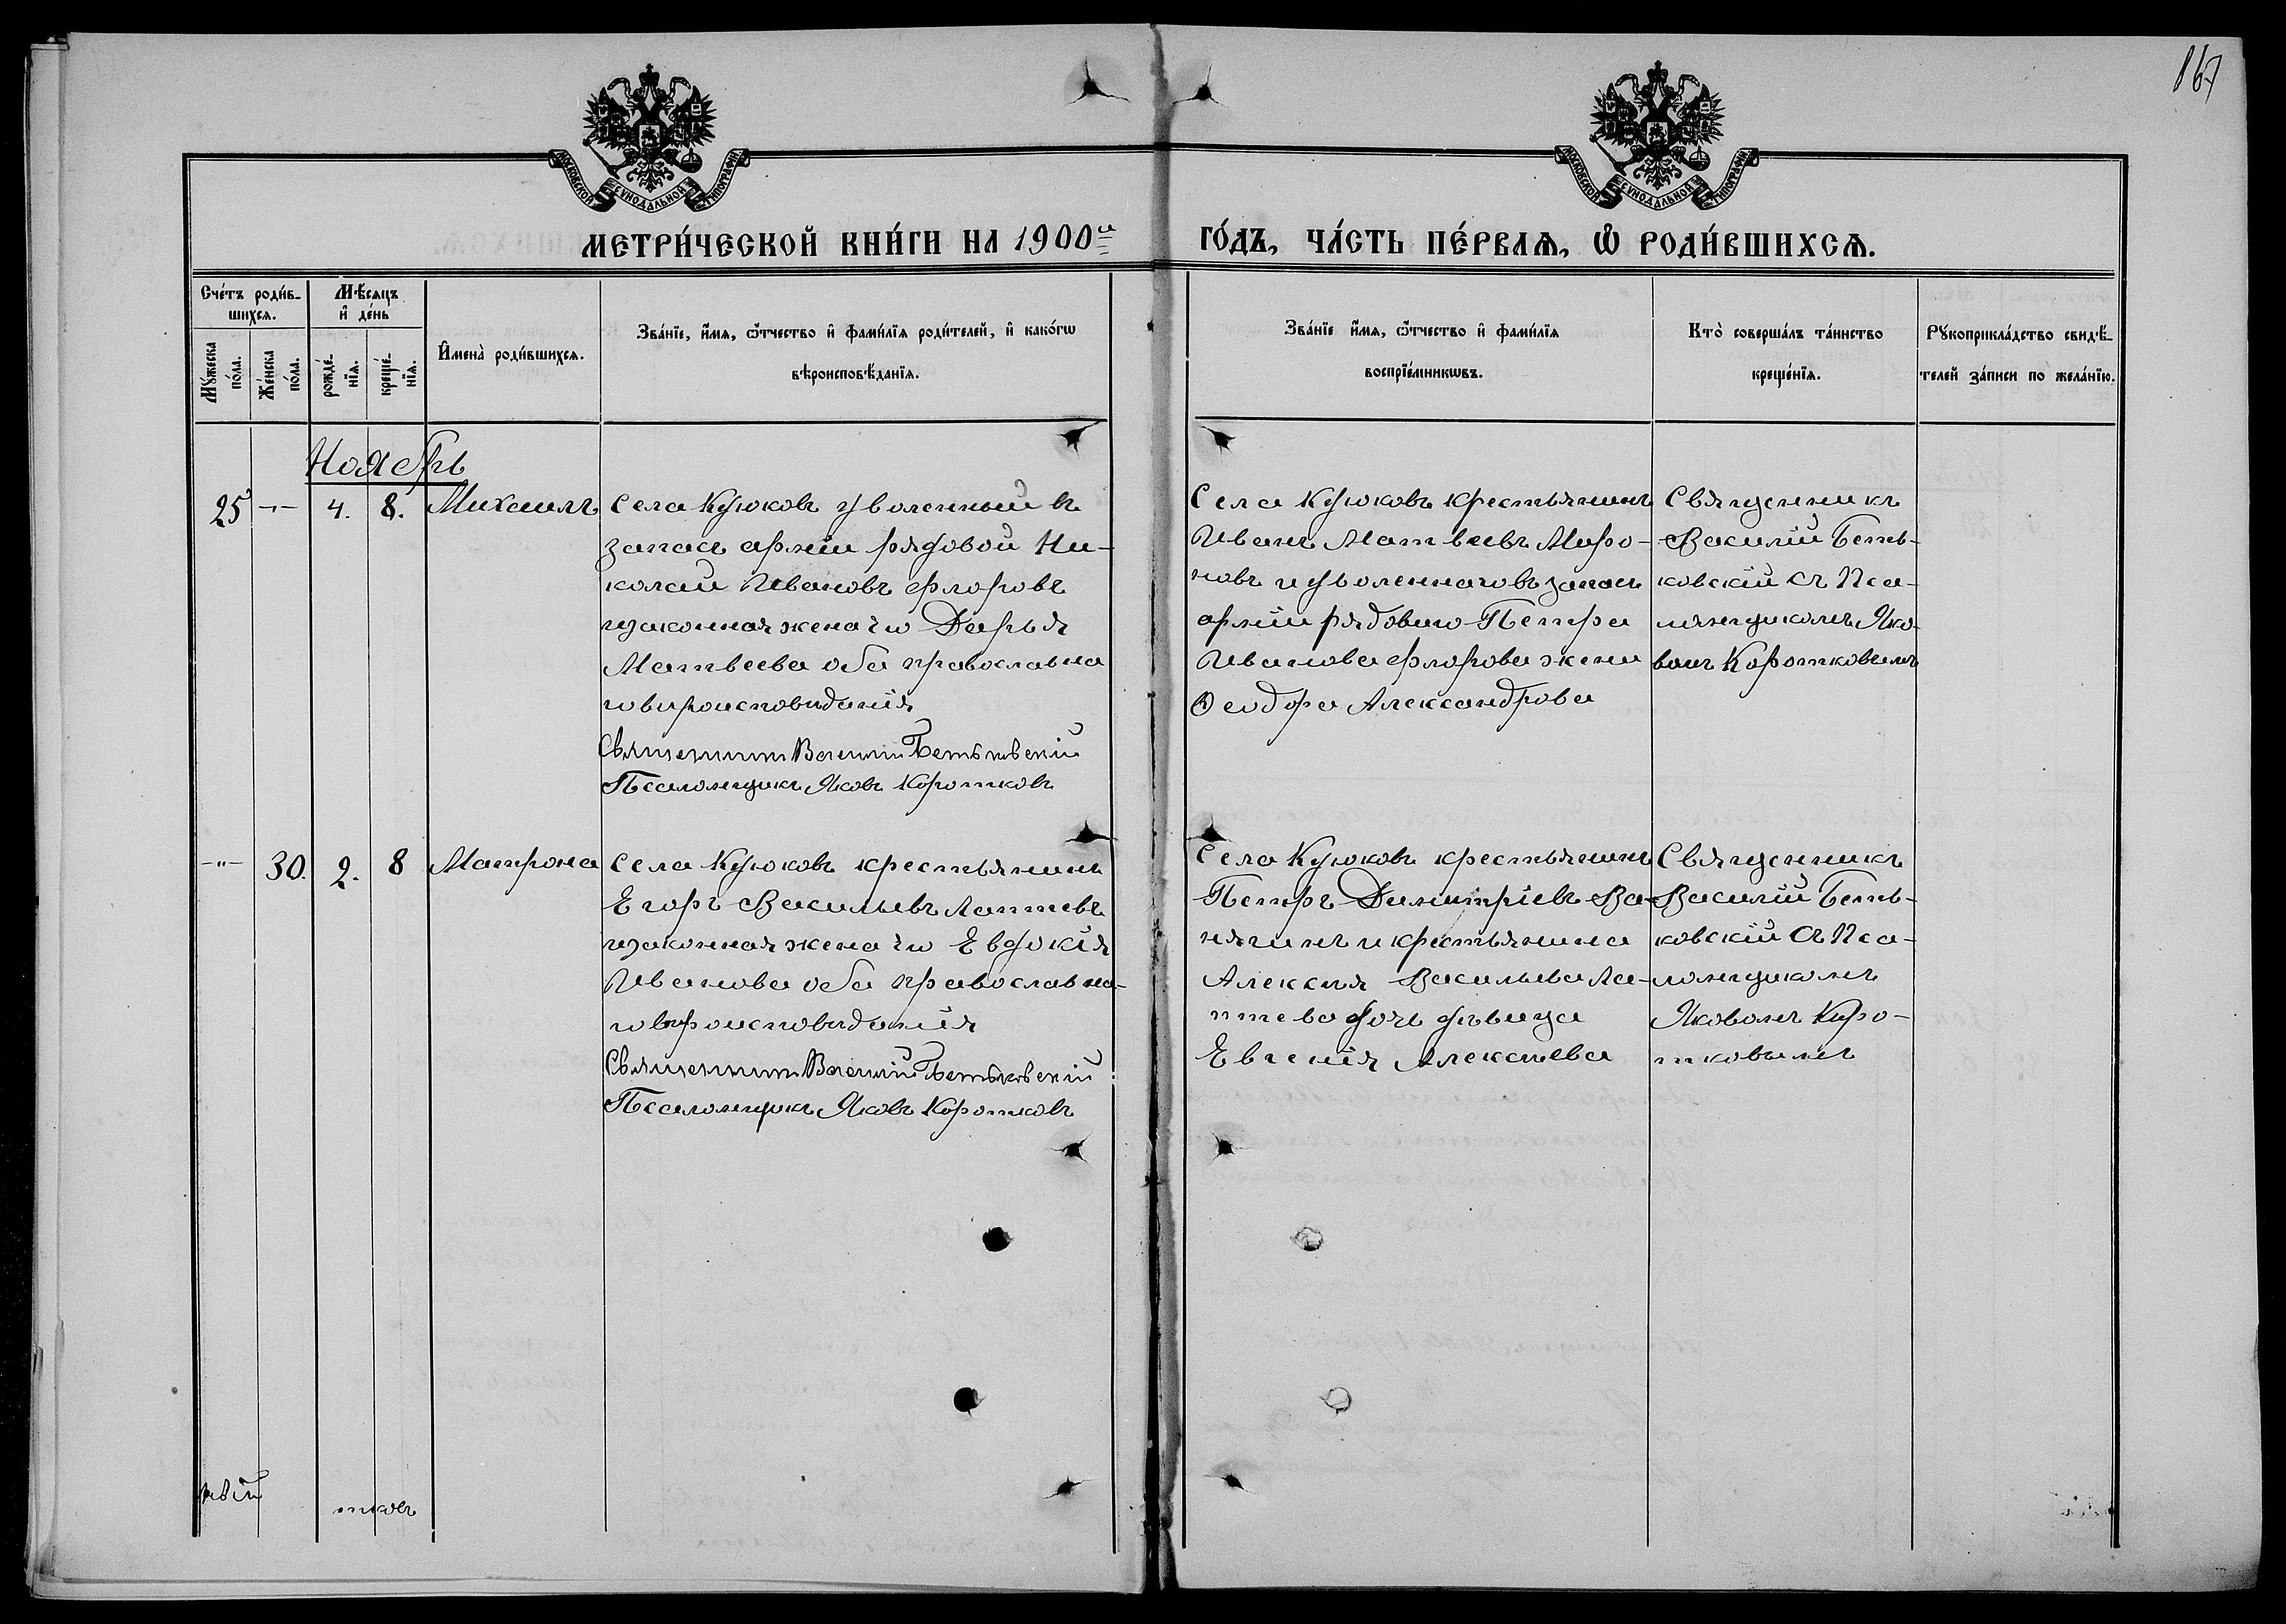 867
МОСКОВСКОЙ СѴНОДАЛЬНОЙ ТИПОГРАФІИ
МОСКОВСКОЙ СѴНОДАЛЬНОЙ ТИПОГРАФІИ
МЕТРИ́ЧЕСКОЙ КНИ́ГИ НА 1900й ГО́ДЪ, ЧА́СТЬ ПЕ́РВАѦ, Ѽ РОДИ́ВШИХСѦ.
Сче́тъ роди́в-
шихсѧ.
Мꙋжеска
по́ла.
Же́нска
по́ла.
Мѣ́сѧцъ
и҆ де́нь
рожде́-
нїѧ.
креще́-
нїѧ.
И҆мена̀ роди́вшихсѧ.
Зва́нїе, и҆́мѧ, ѻ҆́тчество и҆ фами́лїѧ роди́телей, и҆ како́гѡ
вѣроисповѣ́данїѧ.
Зва́нїе и҆́мѧ, ѻ҆́тчество и҆ фами́лїѧ
воспрїе́мникѡвъ.
Кто̀ соверша́лъ та́инство
креще́нїѧ.
Рꙋкоприкла́дство свидѣ́-
телей за́писи по жела́нїю.
Ноябрь
25 -"- 4. 8. Михаилъ
Села Крюковъ уволенный въ
запасъ арміи рядовой Ни-
колай Ивановъ Флоровъ
изаконная жена его Дарья
Матвеева оба православна
говѣроисповѣданія
Священникъ Василій Бетьковскій
Псаломщикъ Яковъ Коротковъ
Села Крюковъ крестьянинъ
Иванъ Матвеевъ Миро-
новъ и уволеннаговъ запасъ
арміи рядоваго Петра
Иванова Флорова жена
Ѳеодора Александрова
Священникъ
Василій Беть-
ковскій съ Пса-
ломщикомъ Яко-
вомъ Коротковымъ
-"- 30. 2. 8 Матрона
Села Крюковъ крестьянинъ
Егоръ Васильевъ Лаптевъ
изаконная жена его Евдокія
Иванова оба православна-
говѣроисповѣданія
Священникъ Василій Бетьковскій
Псаломщикъ Яковъ Коротковъ
Села Крюковъ крестьянинъ
Петръ Димитріевъ Ва-
нягинъ и крестьянина
Алексѣя Васильева Ла-
птева дочь дѣвица
Евгенія Алексѣева
Священникъ
Василій Беть-
ковскій съ Пса-
ломщикомъ
Яковомъ Коро-
тковымъ
ковскій
тковъ